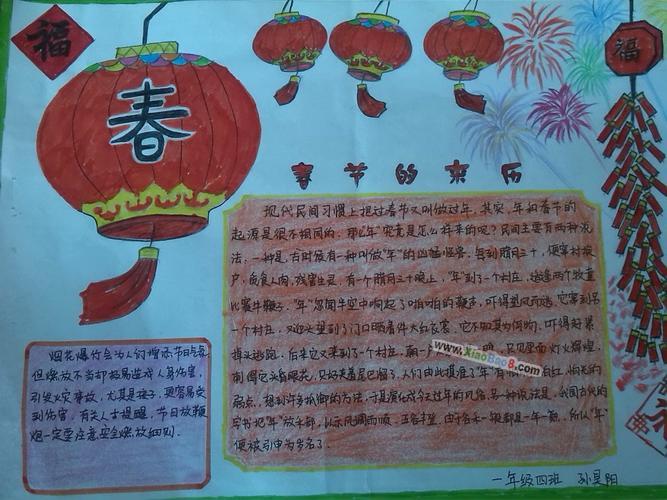 福
春
福
春节的来历
现代民间习惯上把过春节又叫做过年。其实，年和春节的
起源是很不相同的。那么"年"究竟是怎么样来的呢？民间主要有两种说
法：一种是，古时候有一种叫做"年"的凶猛怪兽，每到腊月三十，便窜村挨
户，觅食人肉，残害生灵。有一个腊月三十晚上，"年"到了一个村庄，适逢两个牧童
比赛牛鞭子。"年"忽闻半空中响起了啪啪的鞭声，吓得望风而逃。它窜到另
一个村庄，又迎头望到了门口晒着件大红衣裳，它不知其为何物，吓得赶紧
掉头逃跑。后来它又来到了一个村庄，朝一户 只见里面灯火辉煌，
刺得它头昏眼花，只好夹着尾巴溜了。人们由此摸准了"年"有 红，怕光的
弱点，想到许多抵御的方法，于是演化成今天过年的风俗。另一种说法是，我国古代的
字书把"年"放禾部，以示风调雨顺，五谷丰登。由于谷禾一般都是一年一熟。所以"年"
便被引申为岁名了。
烟花爆竹会为人们增添节日气氛
但燃放不当却极易造成人身伤害，
引发火灾事故，尤其是孩子，更容易受
到伤害，有关人士提醒，节日放鞭
炮一定要注意安全燃放细则。
www.XiaoBao8.com
一年级四班 孙昊阳